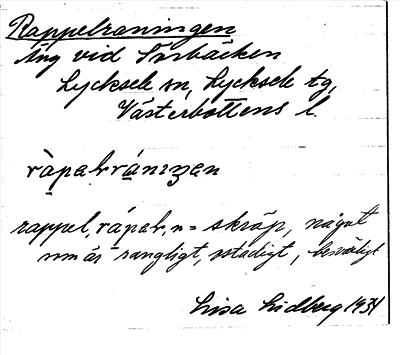 Rappelraningen
Äng vid Torbäcken
Lycksele sn, Lycksele tg,
Västerbottens l.
ràpəlrániŋən
rappel, rápəl, n = skräp, något
som är rangligt, ostadigt, besvärligt
Lisa Lidberg 1934